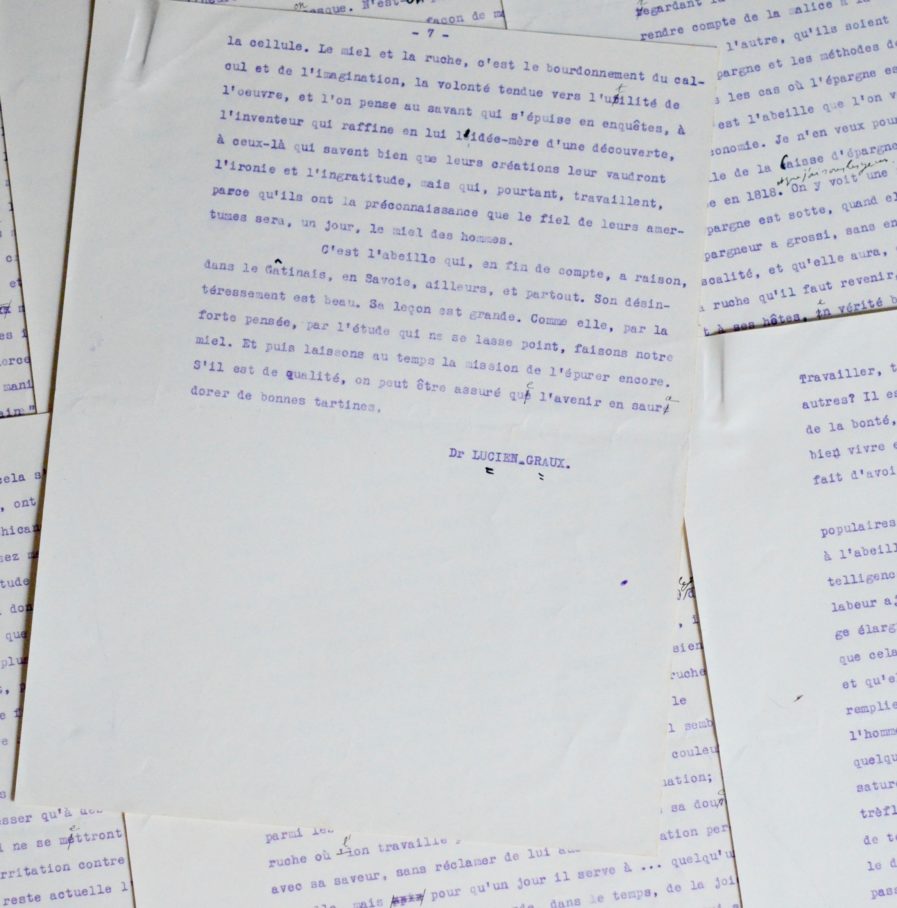 - 7 -
la cellule. Le miel et la ruche, c'est le bourdonnement du cal-
cul et de l'imagination, la volonté tendue vers l'utilité de
l'oeuvre, et l'on pense au savant qui s'épuise en enquêtes, à
l'inventeur qui raffine en lui l'idée-mère d'une découverte,
à ceux-là qui savent bien que leurs créations leur vaudront
l'ironie et l'ingratitude, mais qui, pourtant, travaillent,
parce qu'ils ont la préconnaissance que le fiel de leurs amer-
tumes sera, un jour, le miel des hommes.
C'est l'abeille qui, en fin de compte, a raison,
dans le Gâtinais, en Savoie, ailleurs, et partout. Son désin-
téressement est beau. Sa leçon est grande. Comme elle, par la
forte pensée, par l'étude qui ne se lasse point, faisons notre
miel. Et puis laissons au temps la mission de l'épurer encore.
S'il est de qualité, on peut être assuré que l'avenir en saura
dorer de bonnes tartines.
Dr LUCIEN-GRAUX.
façon de
regardant
rendre compte de la malice à
l'autre, qu'ils soient
pargne et les méthodes
les cas où l'épargne es
est l'abeille que l'on v
onomie. Je n'en veux pour
le de la Caisse d'épargne
e en 1818. On y voit une
pargne est sotte, quand el
pargneur a grossi, sans en
scalité, et qu'elle aura,
ruche qu'il faut revenir,
t à ses hôtes, en vérité
Travailler, t
autres? Il es
de la bonté,
bien vivre e
fait d'avoi
populaires
à l'abeill
telligenc
labeur a
ge élarg
que cela
et qu'el
remplie
l'homme
quelqu
satur
trèfl
de te
le d
pass
cela s
, ont
hican
sez
tude
don
que
plus
sien
ruche
le
l semb
couleu
nation;
sa dou
ation per
esser qu'à des
i ne se mettront
rritation contre
reste actuelle l'
parmi les
ruche où l'on travaille
avec sa saveur, sans réclamer de lui
mais pour qu'un jour il serve à ... quelqu'u
dans le temps, de la joi